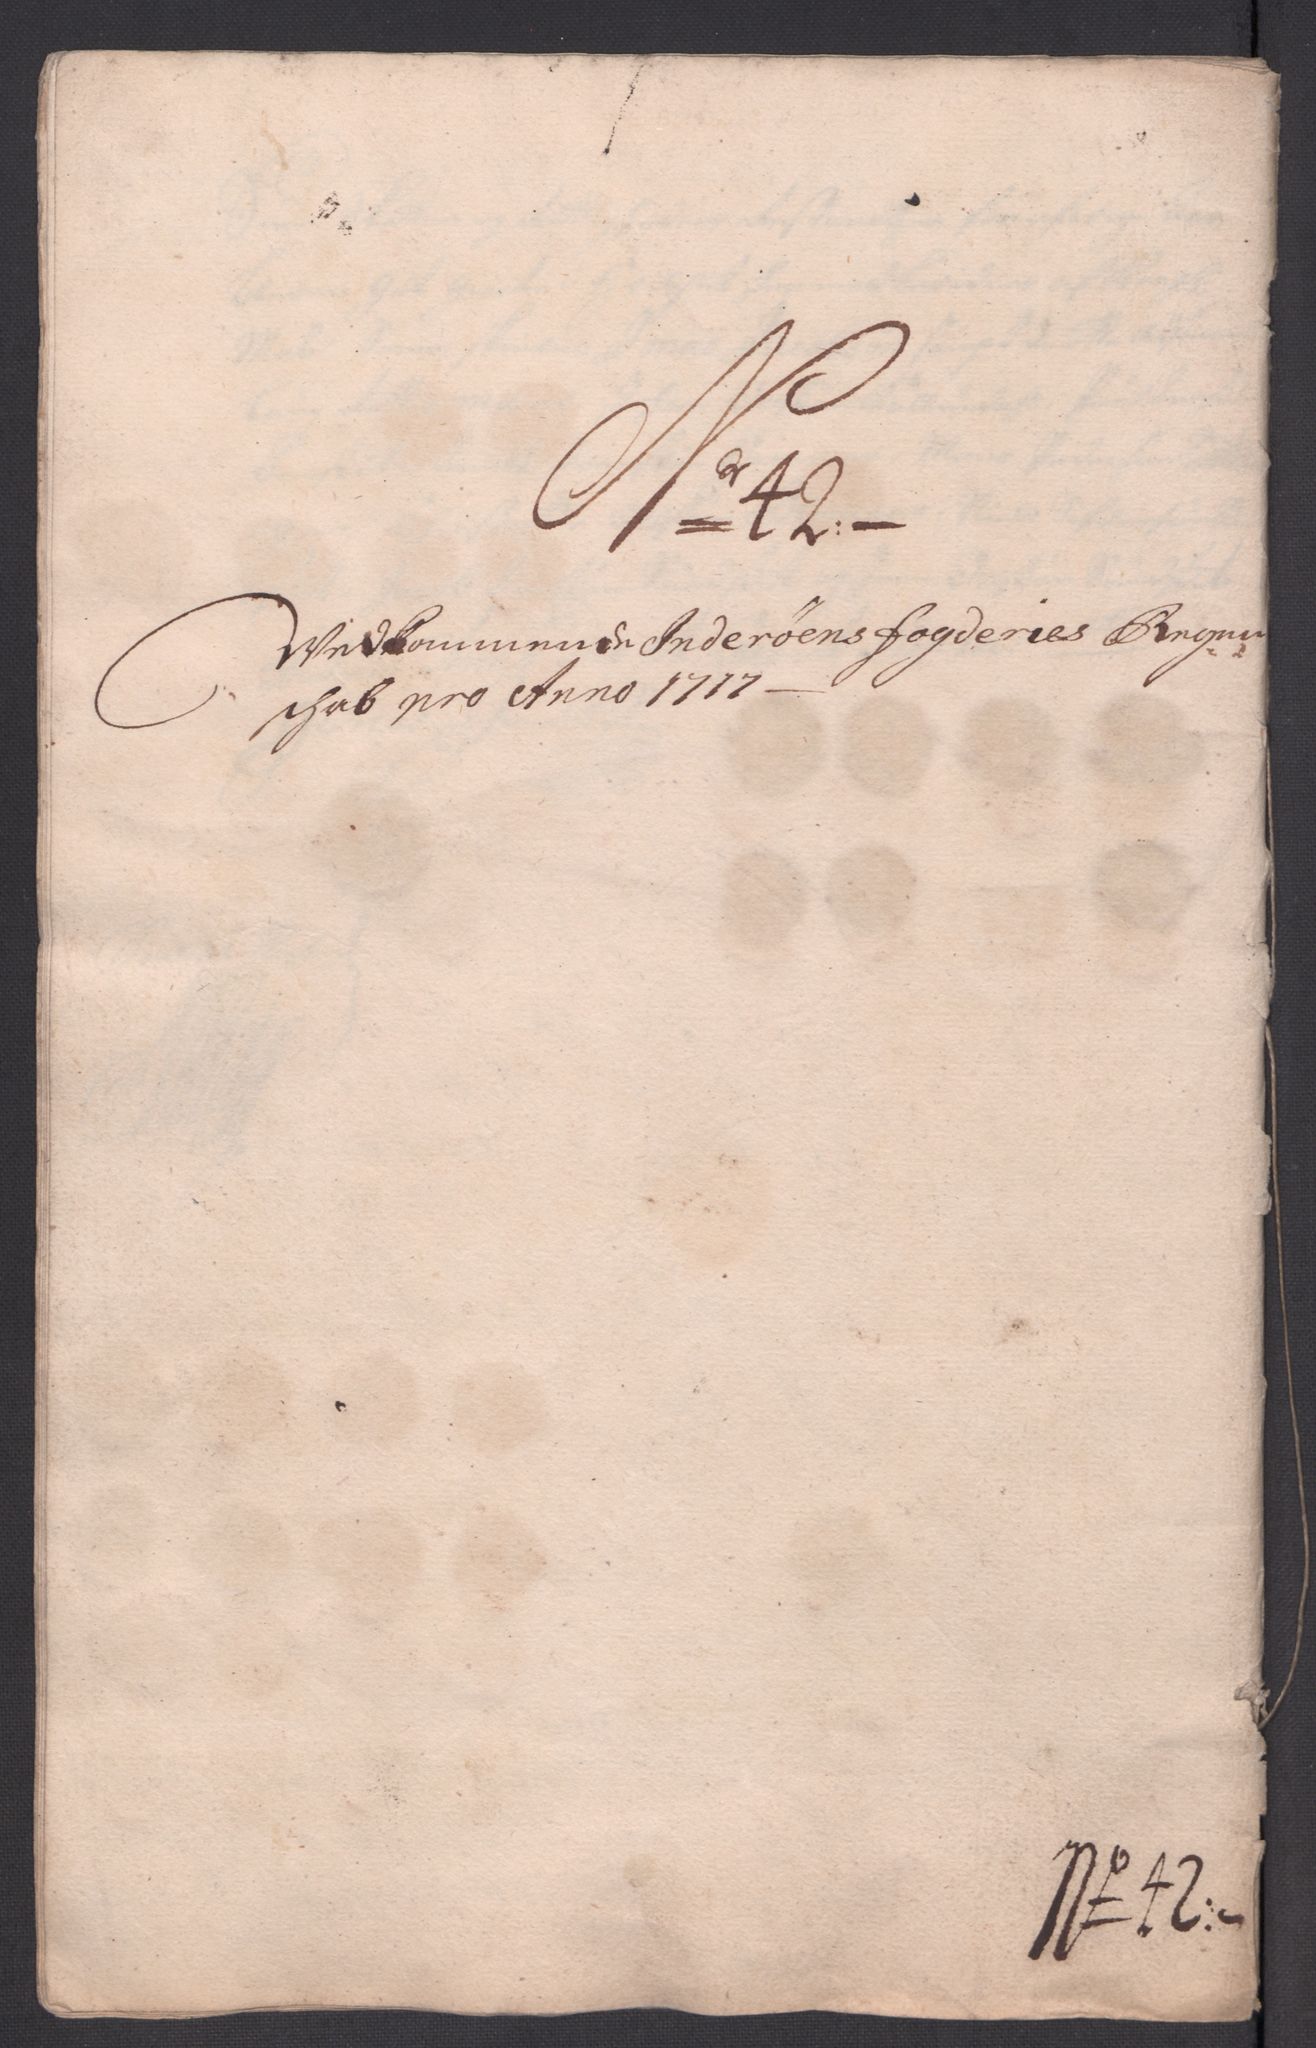 Nr 42:—
Vedkommende Inderöens fogderies Regen
schab pro Anno 1717 —
No 42:-